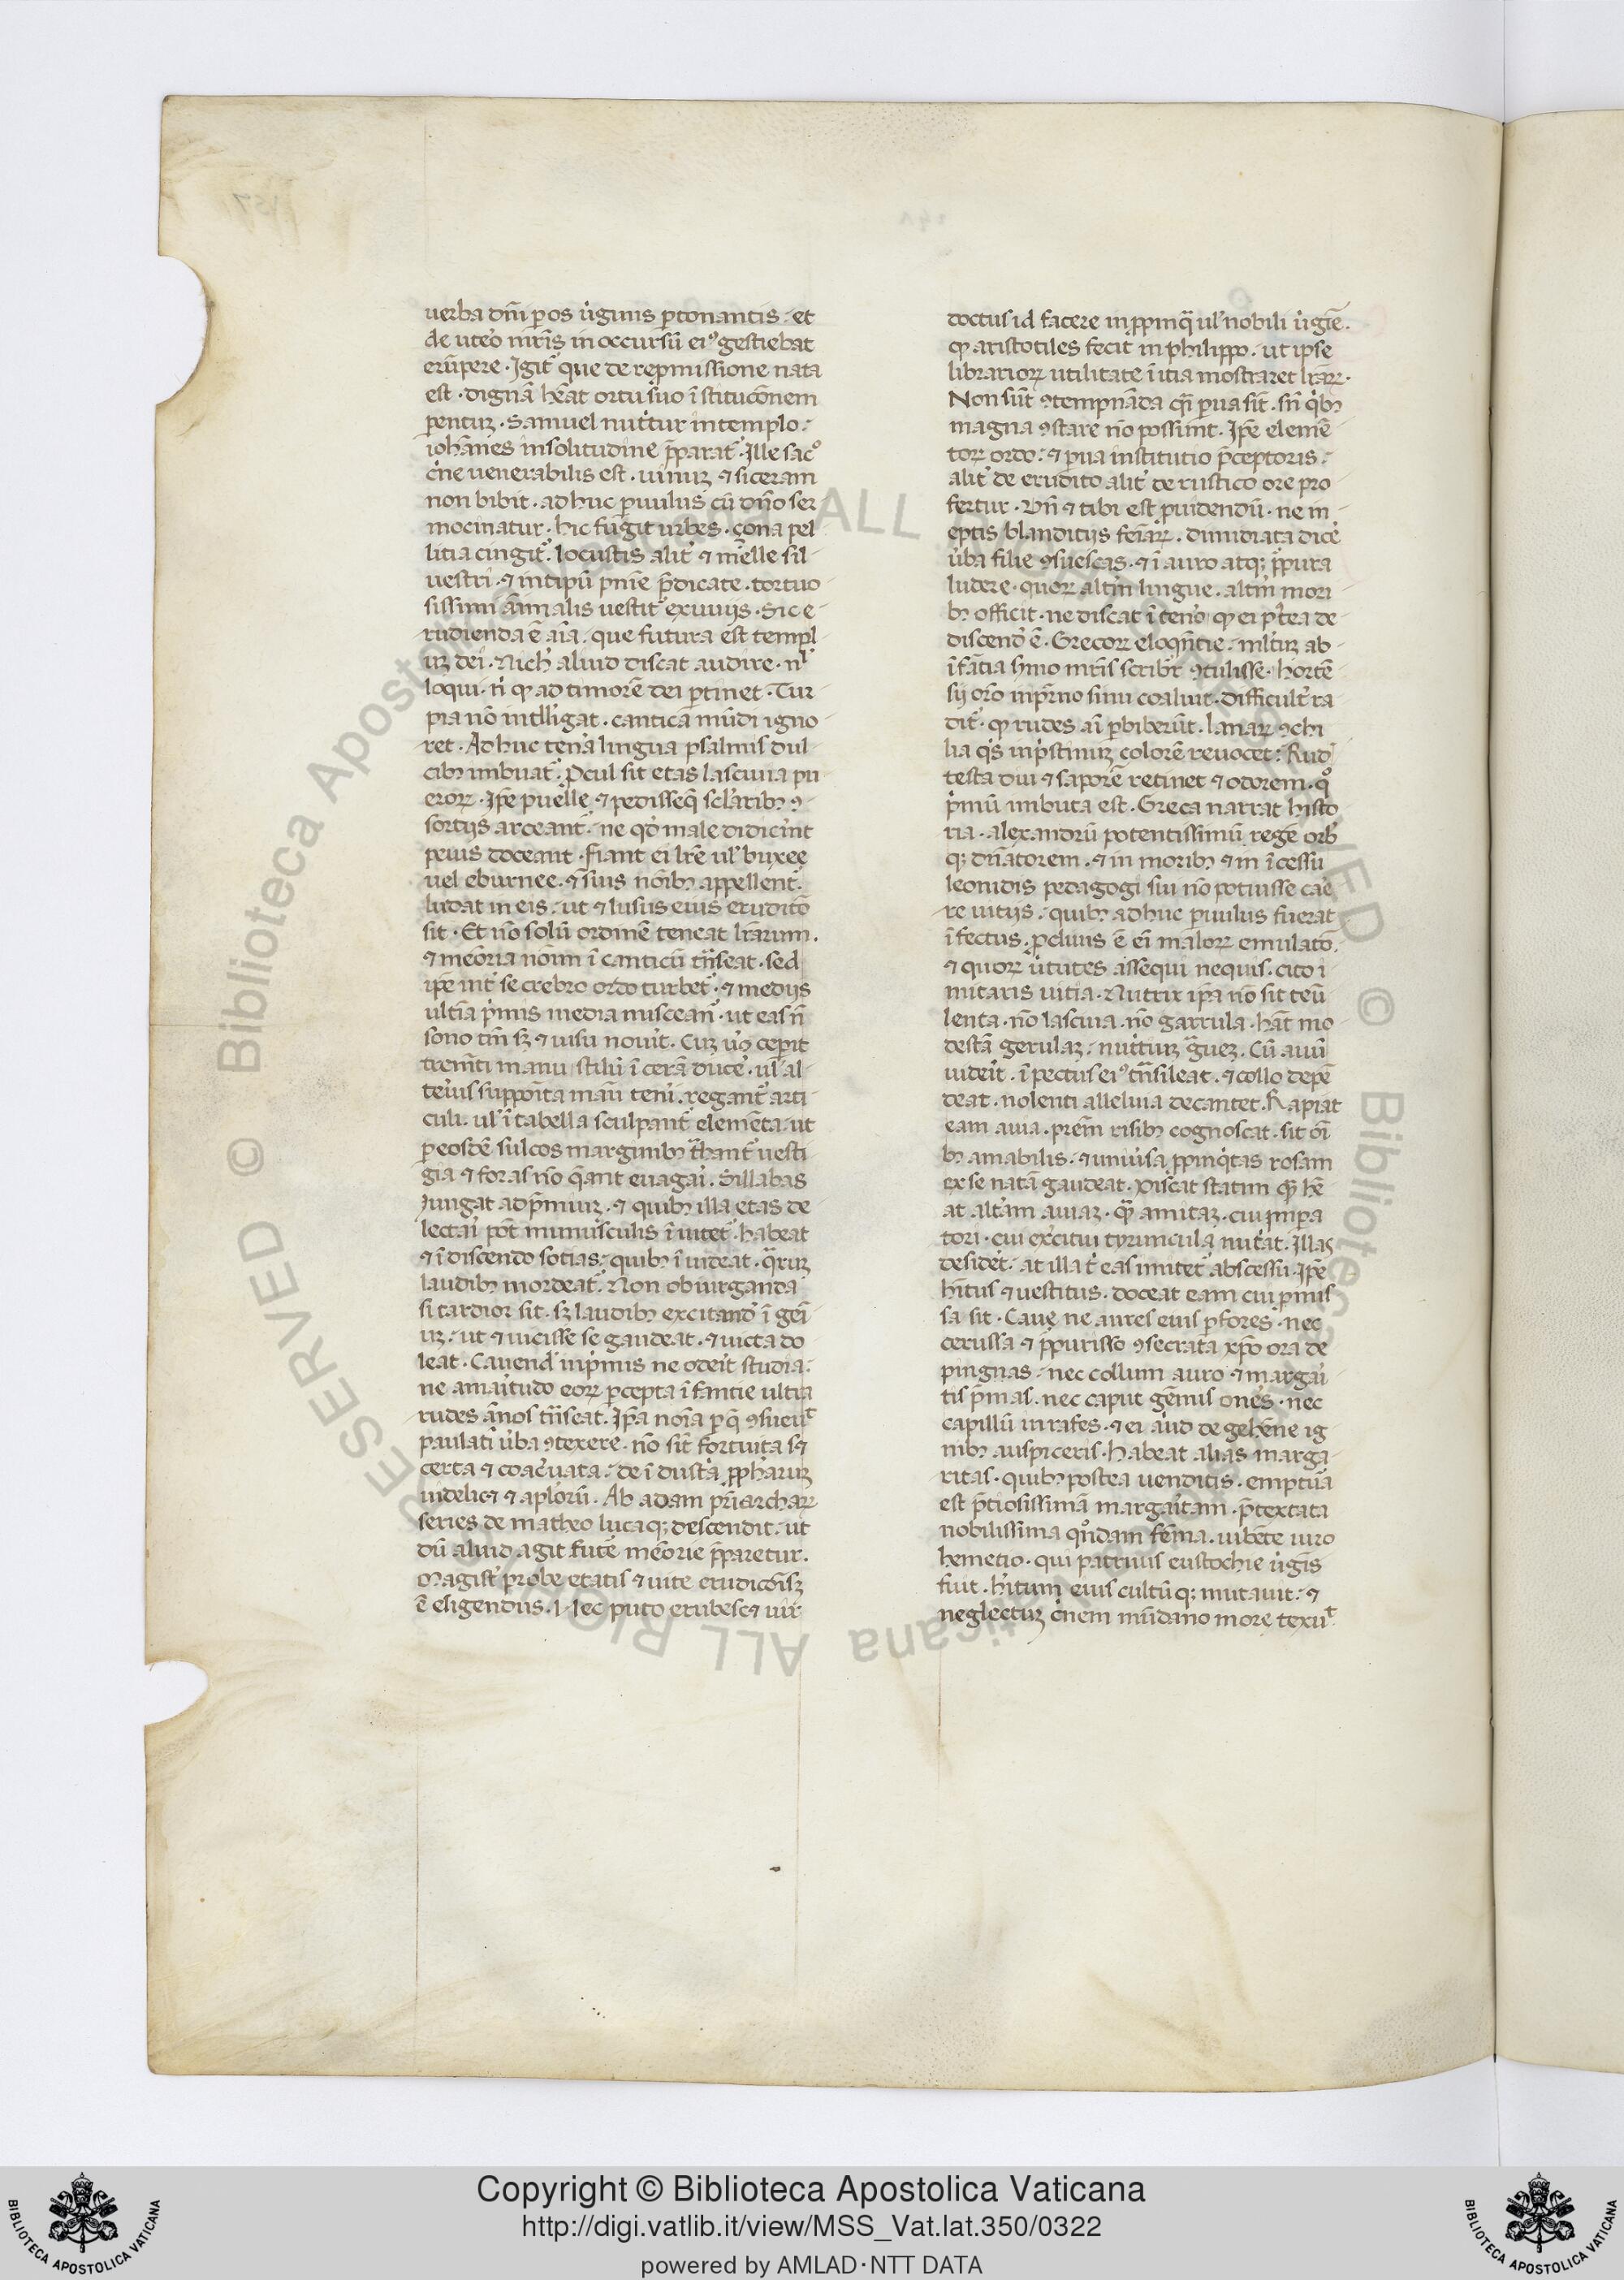 uerba dñi ꝑ os uͥginis ꝑtonantis · et
de uteͦ mr̃is in occursũ eiꝰ gestiebat
erũpere · Igit᷑ que de repmissione nata
est · dignã hẽat ortu suo ĩstitucõnem
pentuꝫ · Samuel nutͥtur in templo :
ioħanes in solitudine p̃parat᷑ · Ille sacͦ
cͥne uenerabilis est · uinuꝫ ⁊ siceram
non bibit · adhuc ꝑuulus cũ dño ser
mocinatur · hic fũgit urbes · çona pel
litia cingit᷑ · locustis alit᷑ ⁊ melle sil-
uestri · ⁊ in tipũ pnie p̃dicate · tortuo
sissimi ãimalis uestit᷑ exuuijs · Sic e-
rudienda ẽ aĩa · que futura est templ
uꝫ dei · Nich̓ aliud discat audire · nl̓
loqui · nͥ ꝙ ad timorẽ dei ꝑtinet · Tur
pia nõ intll̓igat · cantica mũdi igno-
ret · Adhuc ten̓a lingua psalmis dul-
cibꝫ imbuat᷑ · Ꝓcul sit etas lasciuia pu
eroꝝ · Ip̃e puelle ⁊ pedisseq̃ scl̓aribꝫ ꝯ-
sortijs arceant᷑ · ne qͩ male didicer̃t
peius doceant · Fiant ei lr̃e ul̓ buxeę
uel eburnee · ⁊ suis nõibꝫ appellent᷑ ·
ludat in eis : ut ⁊ lusus eius eruditõ
sit · Et nõ solũ ordinẽ teneat lr̃arum ·
⁊ meõria nõim ĩ canticũ tñseat · sed
ip̃e int᷑ se crebro ordo turbet᷑ · ⁊ medijs
ultĩa pͥmis media misceant᷑ · ut eas ñ
sono tm̃ sꝫ ⁊ uisu nouit · Cuꝫ u͛o ceperit
trem̃ti manu stilũ ĩ cerã ducẽ · ul̓ al-
ter̓ius supp̃oita manũ ten̓i · regant᷑ arti
culi · ul̓ ĩ tabella sculpant᷑ elem̃ta · ut
ꝑ eosdẽ sulcos marginibꝫ tͣhant᷑ uesti
gia ⁊ foras nõ q̃ant euagaͥ · Sillabas
Jungat ad p̃miuꝫ · ⁊ quibꝫ illa etas de
lectaͥ põt munusculis ĩuitet᷑ · habeat
⁊ ĩ discendo sotias : quibꝫ ĩuideat · q̃ruꝫ
laudibꝫ mordeat᷑ · Non obiurganda
si tardior sit · sꝫ laudibꝫ excitand̓ ĩgeñi
uꝫ : ut ⁊ uicisse se gaudeat · ⁊ uicta do
leat · Cauend̓ inpͥmis ne oderit studia :
ne amaͥtudo eoꝝ ꝑcepta ĩfantie ultra
rudes ãnos tñseat · Ip̃a nõia ꝑ q̃ ꝯsueuͭ
paulatĩ u͛ba ꝯtexere · nõ sĩt fortuita sꝫ
certa ⁊ coac̓uata · de ĩdustͥa ꝓpharuꝫ
uidelicꝫ ⁊ aplorũ · Ab adam pr̃iarchaꝝ
series de matheo lucaqꝫ descendit · ut
dũ aliud agit fut᷑e meõrie p̃paretur ·
Magist᷑ probe etatis ⁊ uite eruditõisꝫ
ẽ eligendus · Nec puto erubescꝫ uir
doctus id facere in ꝓpinq̃ ul̓ nobili uͥgiẽ ·
ꝙ aristotiles fecit in philippo · ut ipse
librarioꝝ utilitate ĩitia mostraret lr̃aꝝ ·
Non sũt ꝯtempnãda q̃i ꝑua sĩt · sñ qͥbꝫ
magna ꝯstare nõ possunt · Ip̃e elemẽ
toꝝ ordo : ⁊ pua institutio p̃ceptoris :
alit᷑ de erudito alit᷑ de rustico ore pro
fertur · Vñ ⁊ tibi est ꝓuidendũ · ne in-
eptis blanditijs fem̃aꝝ · dimidiata dicẽ
u͛ba filie ꝯsuescas · ⁊ ĩ auro atqꝫ p̃pura
ludere · quoꝝ altm̃ lingue · altm̃ mori
bꝫ officit · ne discat ĩ ten̓o ꝙ ei pͦtea de-
discend̓ ẽ · Grecoꝝ eloqñtie · mltuꝫ ab-
ĩfãtia s̓mo mr̃is scribit᷑ ꝯtulisse · hortẽ
sij oro͂ in pr̃no sinu coaluit · difficult᷑ ra
dit᷑ · ꝙ rudes aĩ ꝑbiberũt · lanaꝝ ꝯchi
lia qͥs in pͥstinuꝫ colorẽ reuocet : Rud̓
testa diu ⁊ saporẽ retinet ⁊ odorem · qͦ
pͥmũ imbuta est · Greca narrat histo
ria · alexandrũ potentissimũ regẽ orb̓
qꝫ dñatorem · ⁊ in moribꝫ ⁊ in ĩcessu
leonidis pedagogi sui nõ potuisse carͤ
re uitijs : quibꝫ adhuc ꝑuulus fuerat
ĩfectus · ꝓcliuis ẽ eĩ maloꝝ emulatõ ·
⁊ quoꝝ uͥtutes assequi nequis · cito i-
mitaris uitia · Nutrix ip̃a nõ sit teũ
lenta · nõ lasciua · nõ garrula · hat᷑ mo
destã gerulaꝫ · nutͥtuꝫ gͣuez · Cũ auũ
uideͥt · ĩ pectus eiꝰ tñsileat · ⁊ collo depẽ
deat · nolenti alleluia decantet · Rapiat
eam auia · pr̃em risibꝫ cognoscat · sit õi
bꝫ amabilis · ⁊ uniu͛sa ꝓpinqͥtas rosam
ex se natã gaudeat · Discat statim q̃ꝫ hẽ
at alt᷑am auiaꝫ · q̃ꝫ amitaꝫ · cui inpa
tori · cui ex̓citui tyruncula nutͥat᷑ · Illas
desidet᷑ · at illa t̓ eas mitet᷑ abscessu · Ip̃e
hĩtus ⁊ uestitus · doceat eam cui ꝓmis
sa sit · Cauę ne aures eius ꝑfores · nec
cerussa ⁊ p̃purisso ꝯsecrata xp̃o ora de
pingnas · nec collum auro ⁊ margaͥ
tis p̃mas · nec caput gẽmis on̓es · nec
capillũ inrufes · ⁊ ei aͥud de gehẽne ig
nibꝫ auspiceris · habeat alias marga
ritas · quibꝫ postea uenditis · emptuͣa
est p̃ciosissimã margaͥtam · p̃textata
nobilissima qͦndam fẽma · iubẽte uiro
hemetio · qui patruus eustochie uͥgĩs
fuit · hĩtum eius cultũqꝫ mutauit : ⁊
neglectuꝫ cͥnem mũdano more texuͭ
Copyright © Biblioteca Apostolica Vaticana
http://digi.vatlib.it/view/MSS_Vat.lat.350/0322
powered by AMLAD·NTT DATA